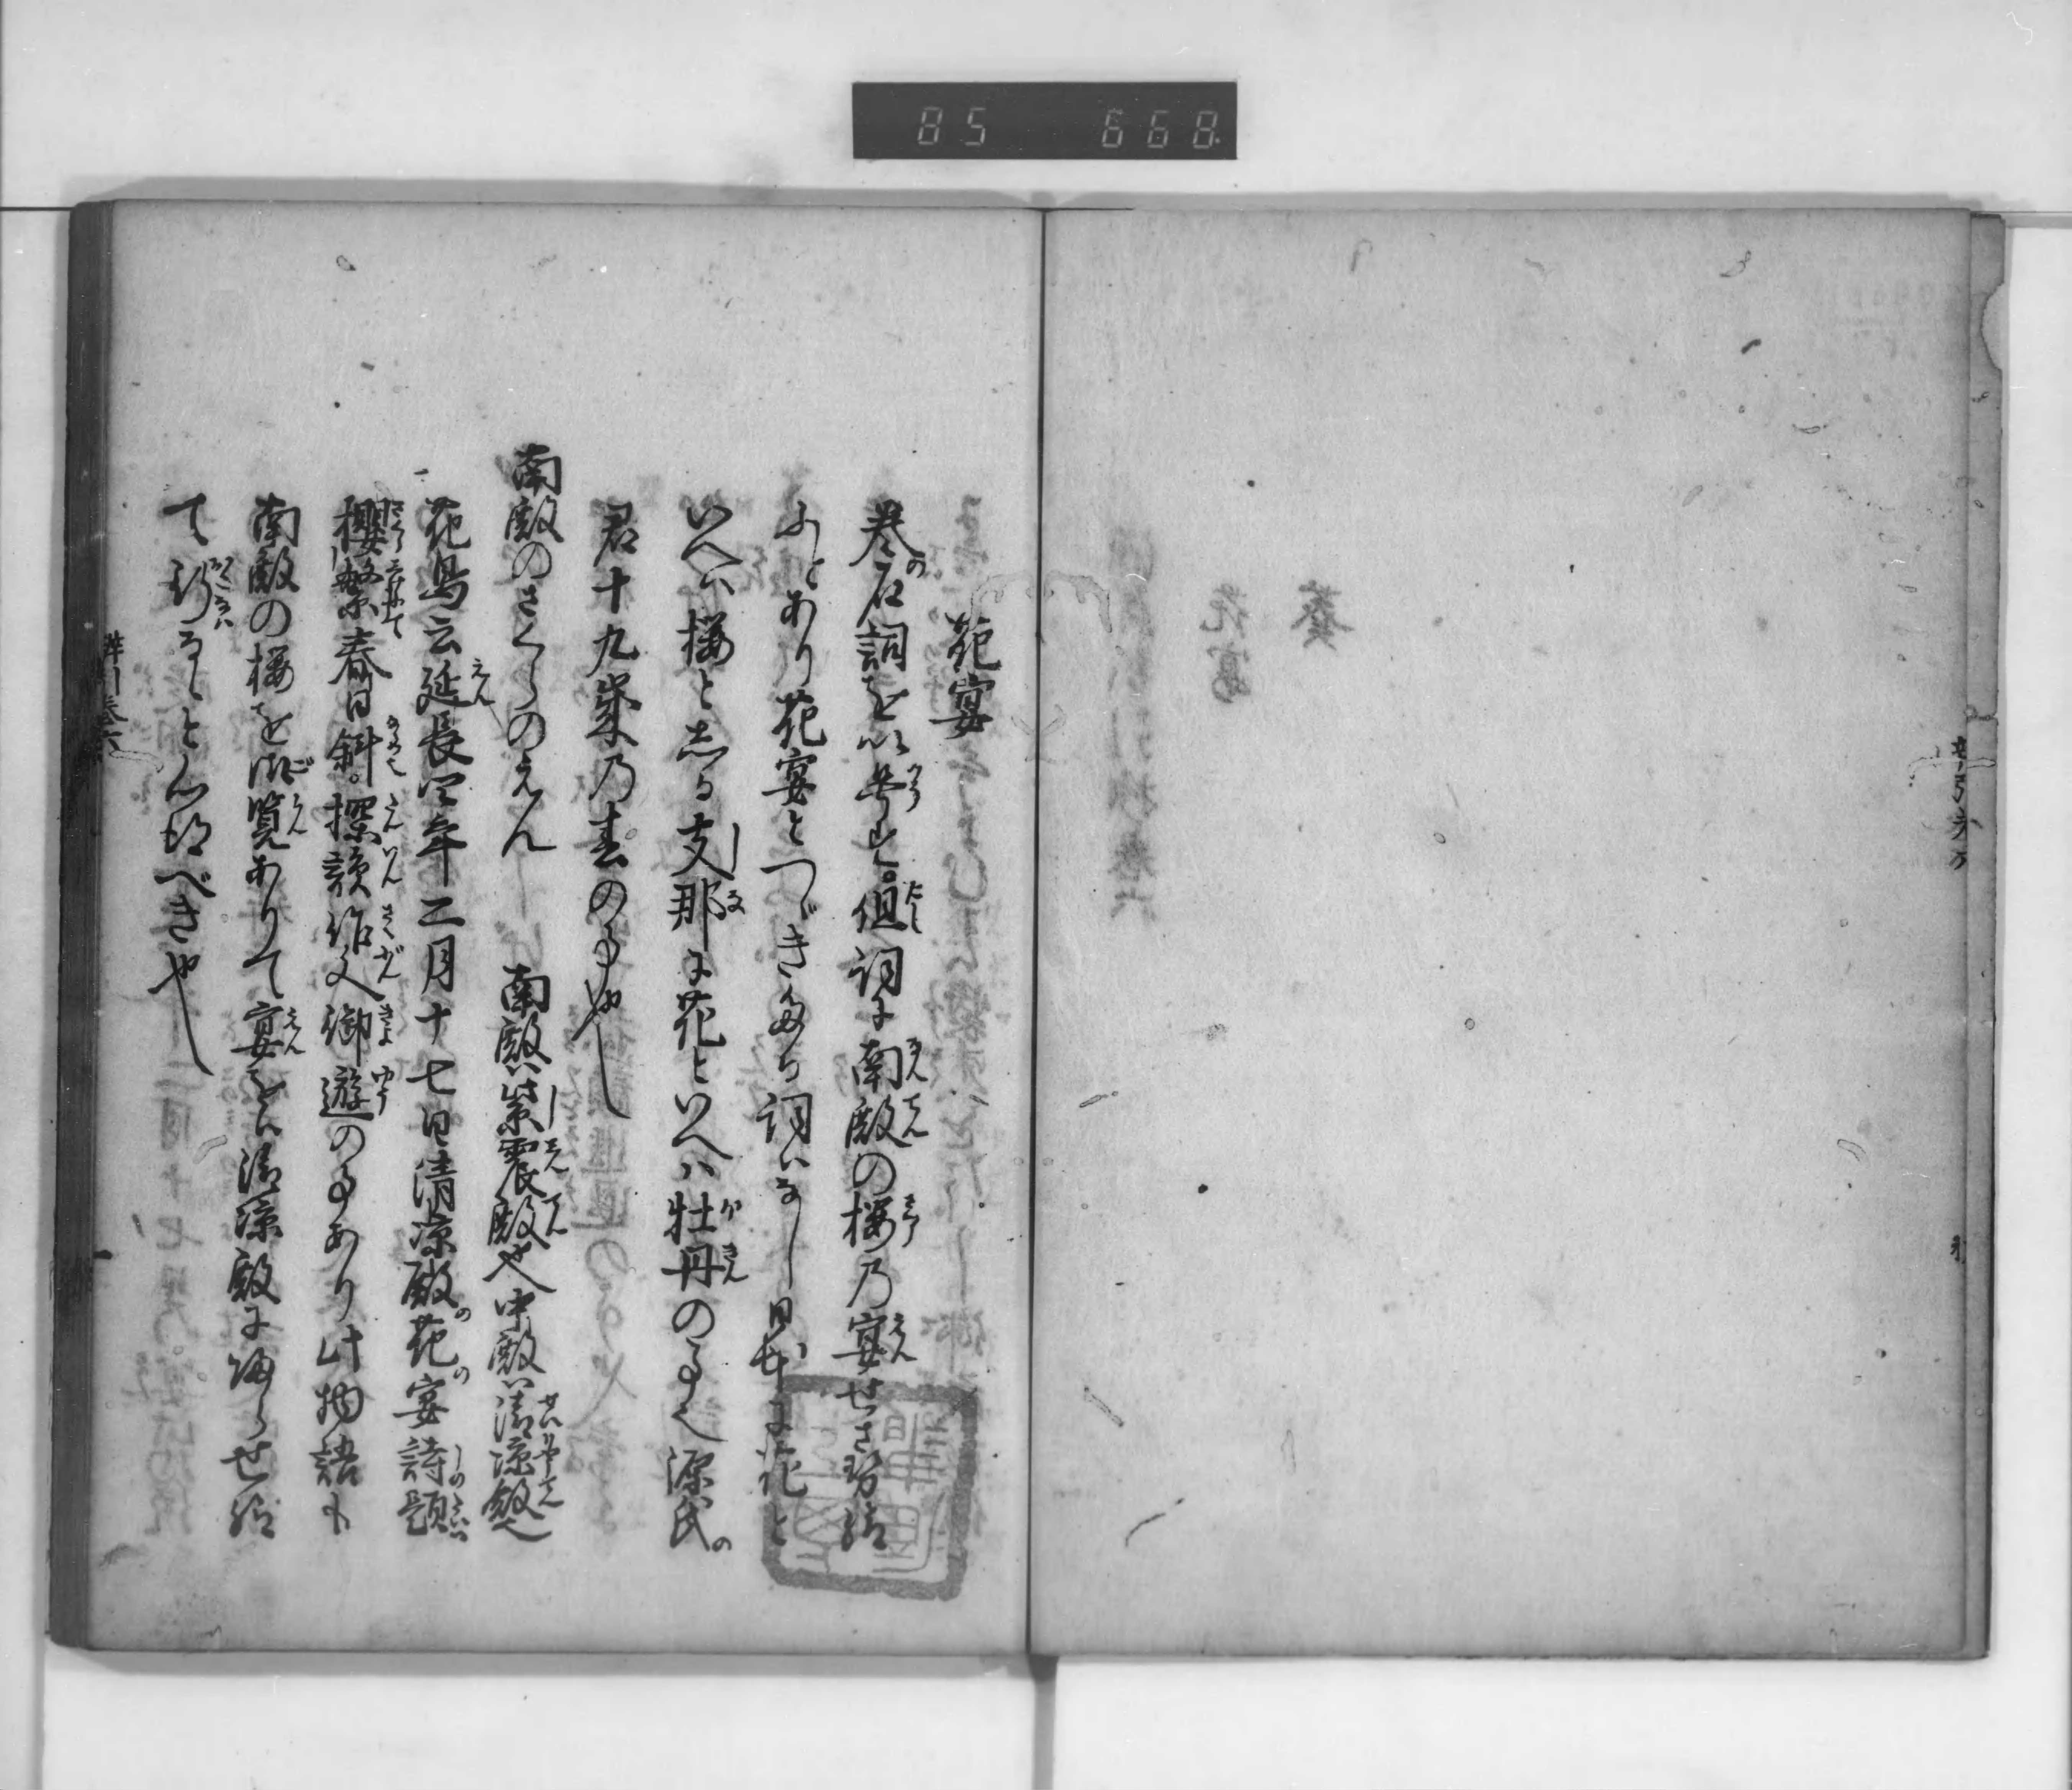 85 668
花宴
巻の名詞を以号す。但詞に南殿の桜乃宴せさせ給
ふとあり花宴とつゞきたる詞はなし日本に花と
いへは桜としる支那に花といへは牡丹の事也源氏の
君十九歳乃春の事也
南殿のさくらのえん 南殿ハ紫震殿也中殿ハ清涼殿也
花鳥云延長四年二月十七日清涼殿の花の宴詩題
櫻繁春日斜。探韻作文御遊の事あり此物語も
南殿の桜を御覧ありて宴をは清涼殿にぬらせ給
と心得べき也